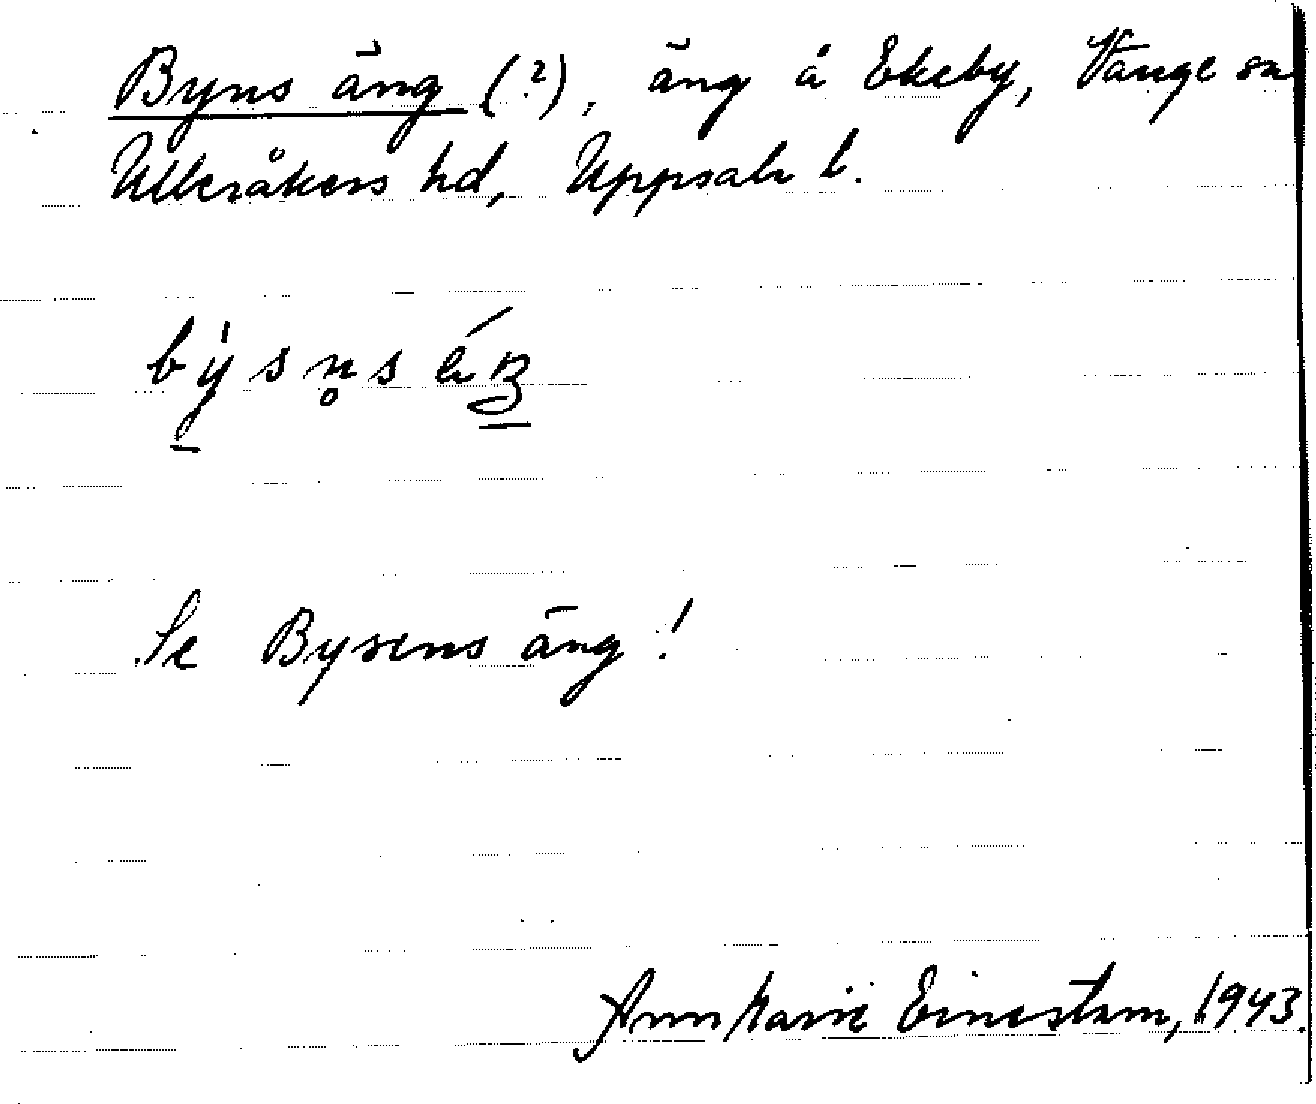 Byns äng (?), äng å Ekeby, Vänge sn
Ulleråkers hd, Uppsala l.
Se Bysens äng!
Ann Marie Einestam, 1943.